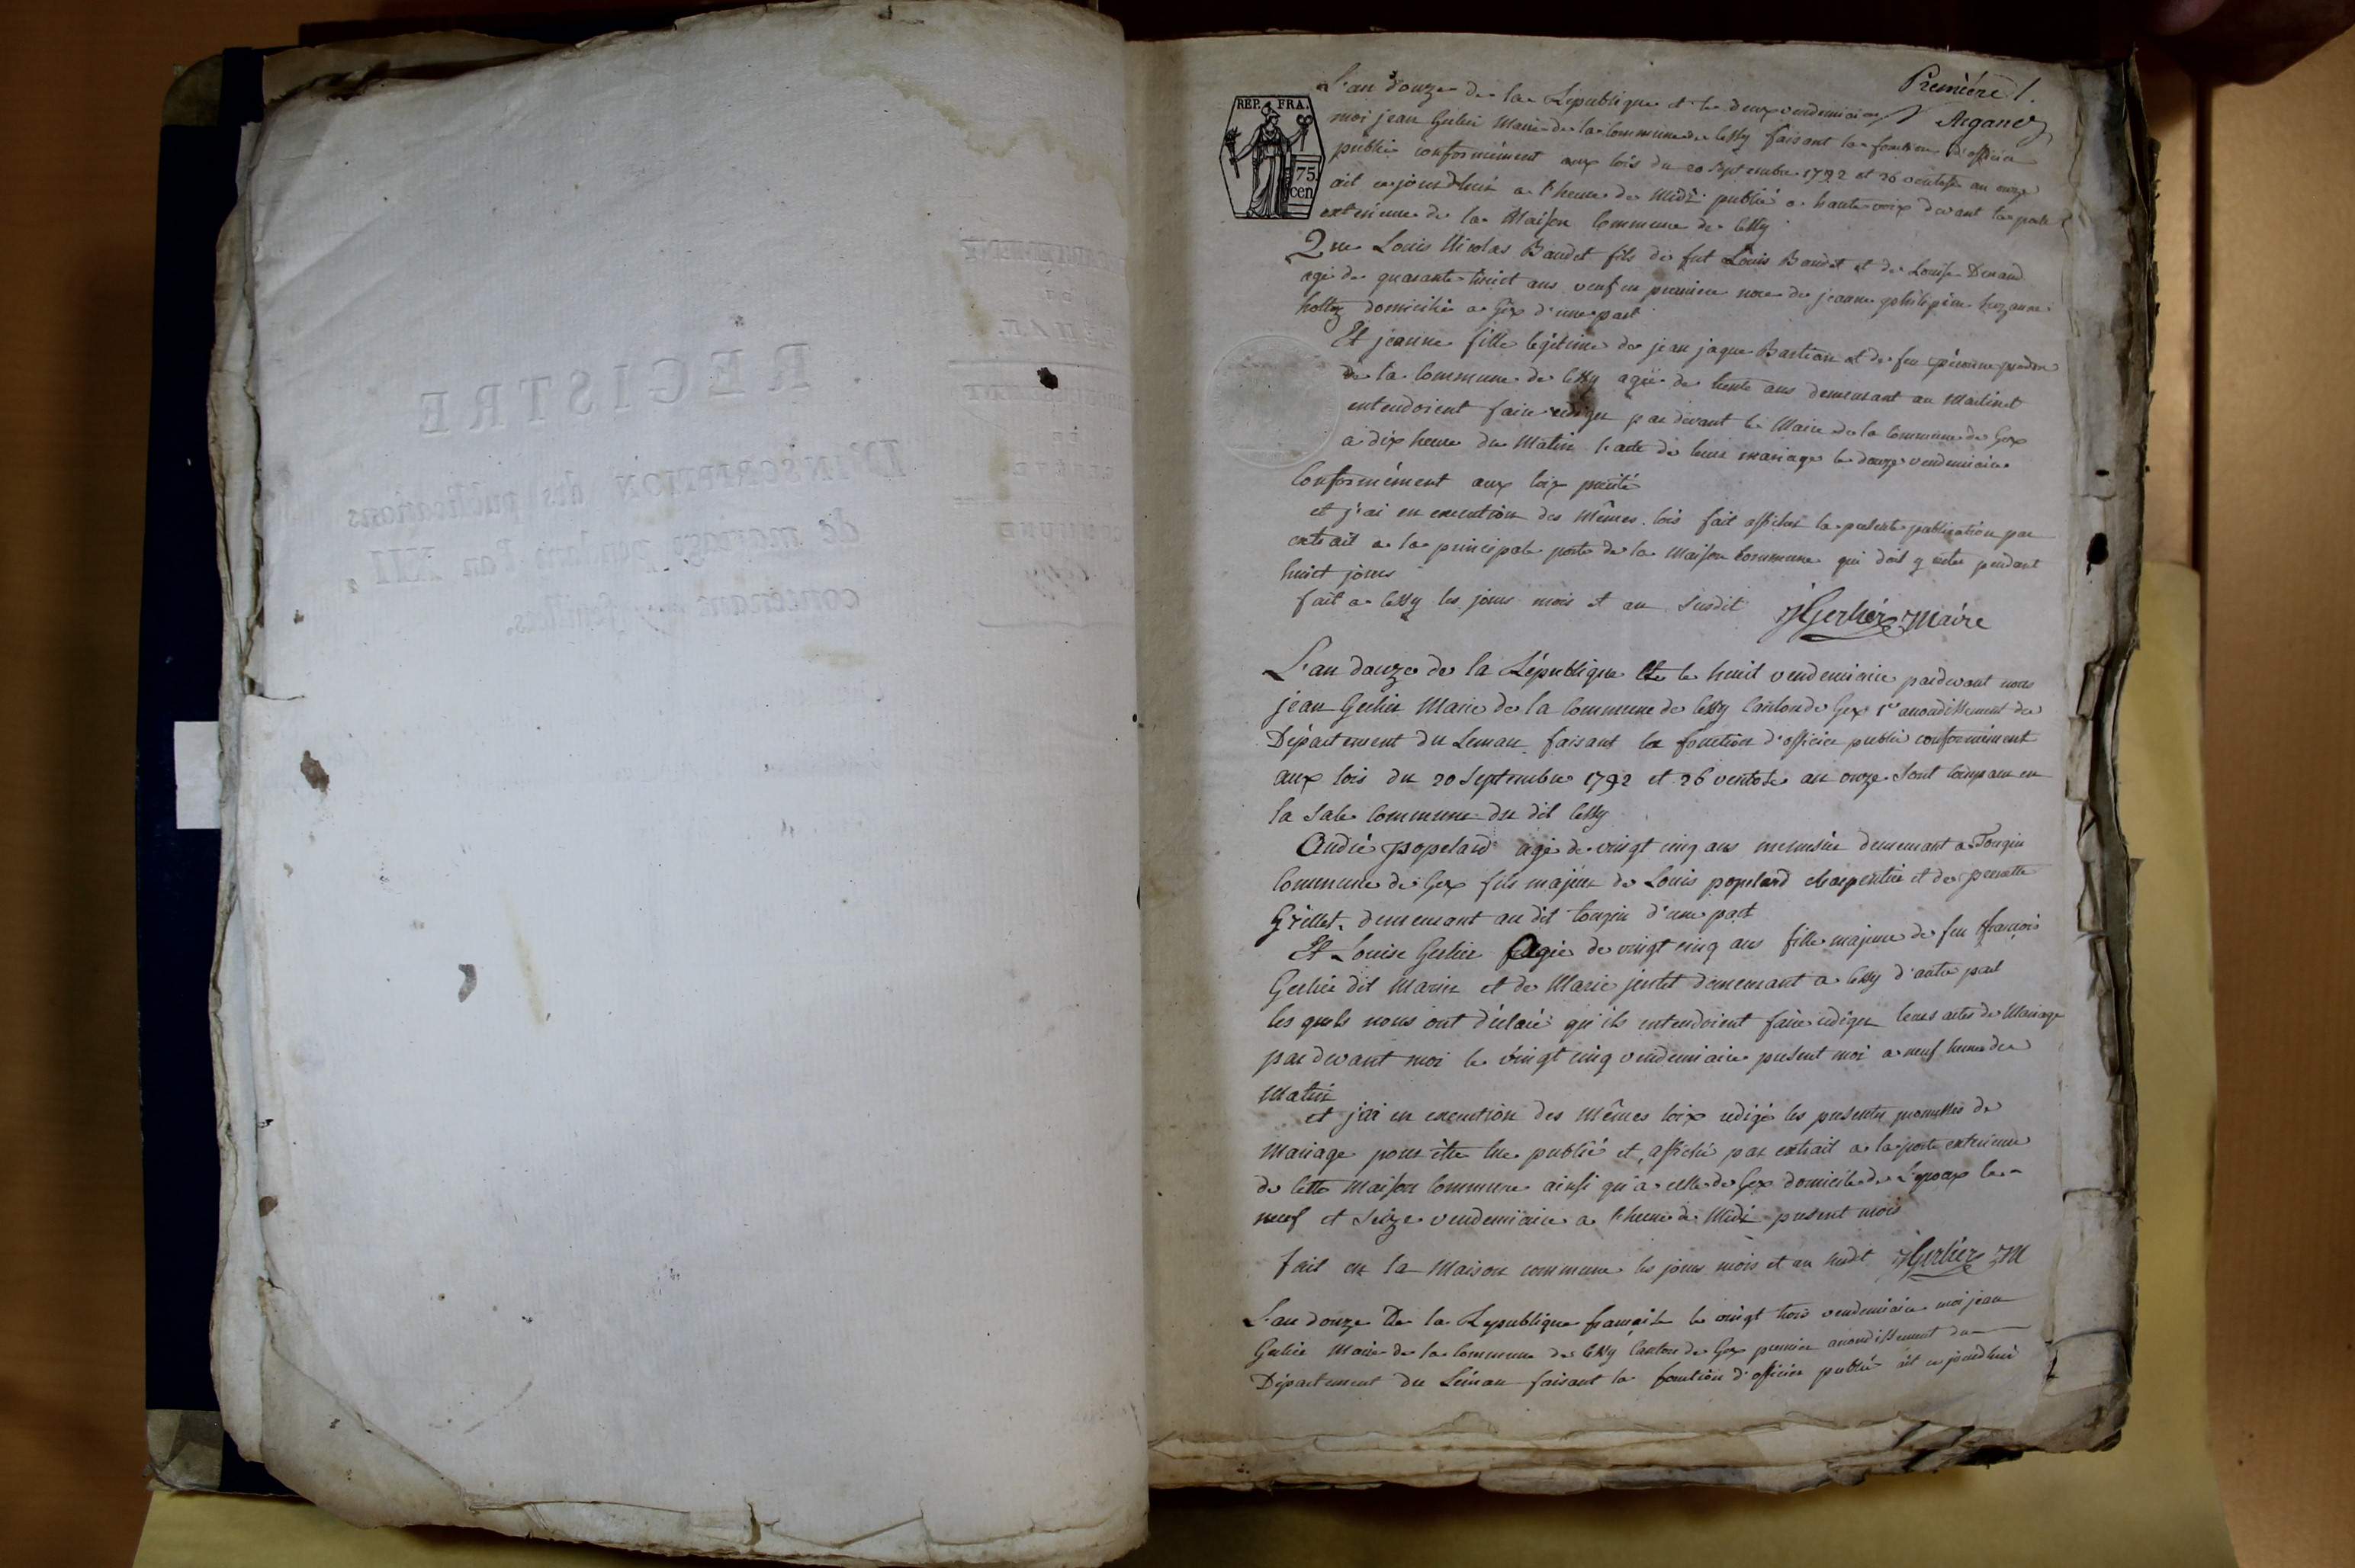 DÉPARTEMENT
DU
LÉMAN.
ARRONDISSEMENT
DE
COMMUNE
REGISTRE
D'INSCRIPTION des publications
de mariage pendant l'an XII,
contenant feuilles.
Première 1.
REP. FRA.
75.
cen
L'an douze de la Republique et le deux vendemiaire
moi jean Gerlier Maire de la Commune de Cessy faisant la fonction d'officier
public conformément aux lois du 20 Septembre 1792 et 26 ventose an onze
ait cejourdhui a l'heure de Midi publié a haute voix devant la porte
exterieure de la Maison Commune de Cessy
Que Louis Nicolas Baudet fils de fut Louis Baudet et de Louise
agé de quarante huict ans veuf en premiere noce de jeanne
domicilié a Gex d'une part
Et jeanne fille legitime de jean jaque Bastian et de feu
de la Commune de Cessy agée de trente ans demeurant au Martinet
entendoient faire rediger par devant le Maire de la Commune de Gex
a dix heure du Matin l'acte de leur mariage le douze vendemiaire
Conformément aux loix precité
et j'ai en execution des mêmes lois fait afficher la presente publication par
extrait a la principale porte de la Maison Commune qui doit y rester pendant
huict jours
fait a Cessy les jours mois et an susdit JGerlier Maire
L'an douze de la République et le huit vendemiaire pardevant nous
jean Gerlier Maire de la Commune de Cessy Canton de Gex 1er arrondissement du
Département du Leman faisant la fonction d'officier public conformément
aux lois du 20 Septembre 1792 et 26 ventose an onze Sont comparu en
la Sale Commune du dit Cessy
André popelard agé de vingt cinq ans menusier demeurant a Tougin
Commune de Gex fils majeur de Louis popelard charpentier et de pernette
Grillet demeurant au dit tougin d'une part
Et Louise Gerlier Agée de vingt cinq ans fille majeure de feu françois
Gerlier dit Marin et de Marie jentet demeurant a Cessy d'autre part
les quels nous ont déclaré qu'ils entendoient faire rediger leurs actes de Mariage
par devant moi le vingt cinq vendemiaire present moi a neuf heures du
Matin
et j'ai en execution des mêmes loix redigé les presentes promesses de
Mariage pour être lue publié et affiché par extrait a la porte exterieure
de Cette Maison Commune ainsi qu'a celle de Gex domicile de L'epoux le
neuf et seize vendemiaire a l'heure de Midi present mois
fait en la Maison commune les jours mois et an susdit JGerlier M
L'an douze De la Republique française le vingt trois vendemiaire moi jean
Gerlier Maire de la Commune de Cessy Canton de Gex premier arrondissement du
Département du Léman faisant la fonction d'officier public ait ce jourdhui